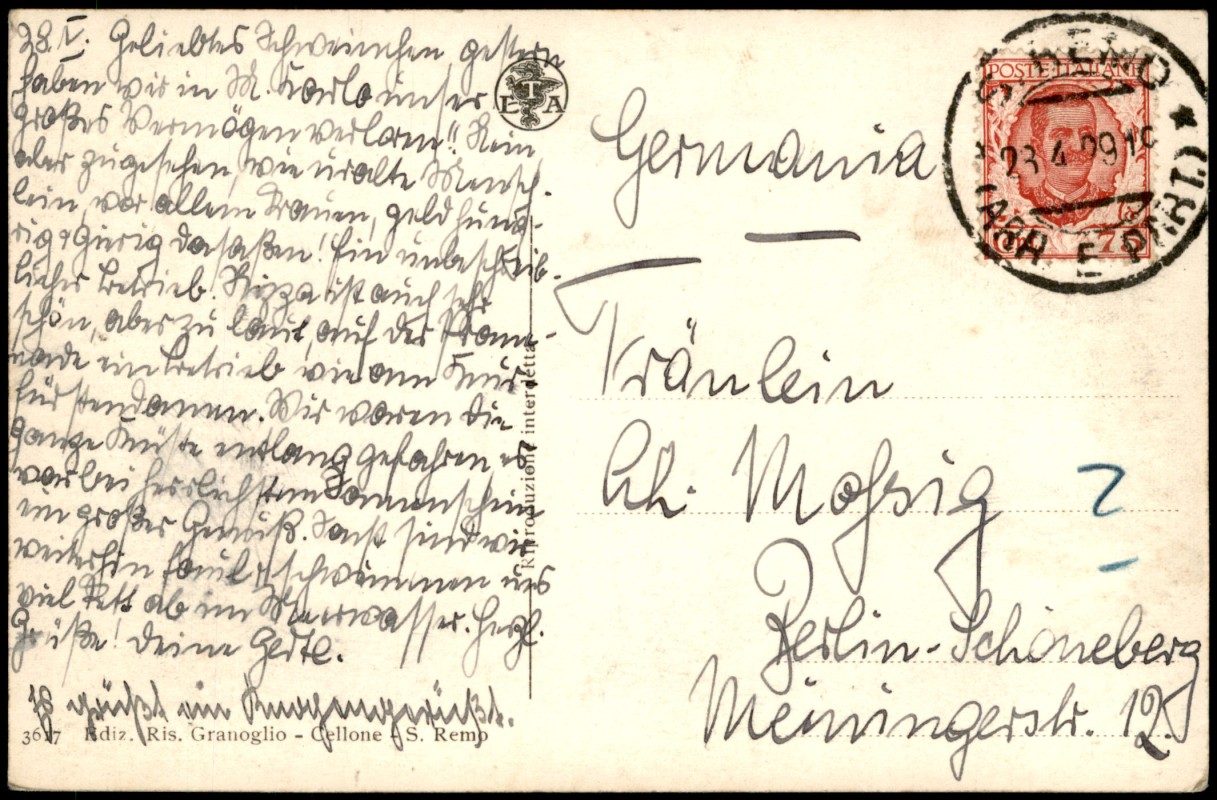 28. IV. Geliebtes Schweinchen, gestern
haben wir in M. Carlo unser
großes Vermögen verloren!! Nein
aber zugesehen, wie uralte Mensch-
lein, vor allem Frauen, geldhung-
rig & gierig dasaßen! Ein unbeschreib-
licher Betrieb. Nizza ist auch sehr
schön, aber zu laut, auf der Prome-
nade ein Betrieb wie am Kur-
fürstendamm. Wir waren die
ganze Küste entlang gefahren es
war bei herrlichstem Sonnenschein
ein großer Genuß. Sonst sind wir
weiterhin faul & schwimmen uns
viel Fett ab im Meerwasser. Herzl.
Grüße! Deine Gertl.
Es grüßt ein Knochengerüst.
3617 Ediz. Ris. Granoglio - Cellone - S. Remo
Riproduzione interdetta
L T A
POSTE ITALIANE
S. REMO
28.4.29.19
Germania
Fräulein
Ch. Mossig
Berlin-Schöneberg
Meiningerstr. 12
2